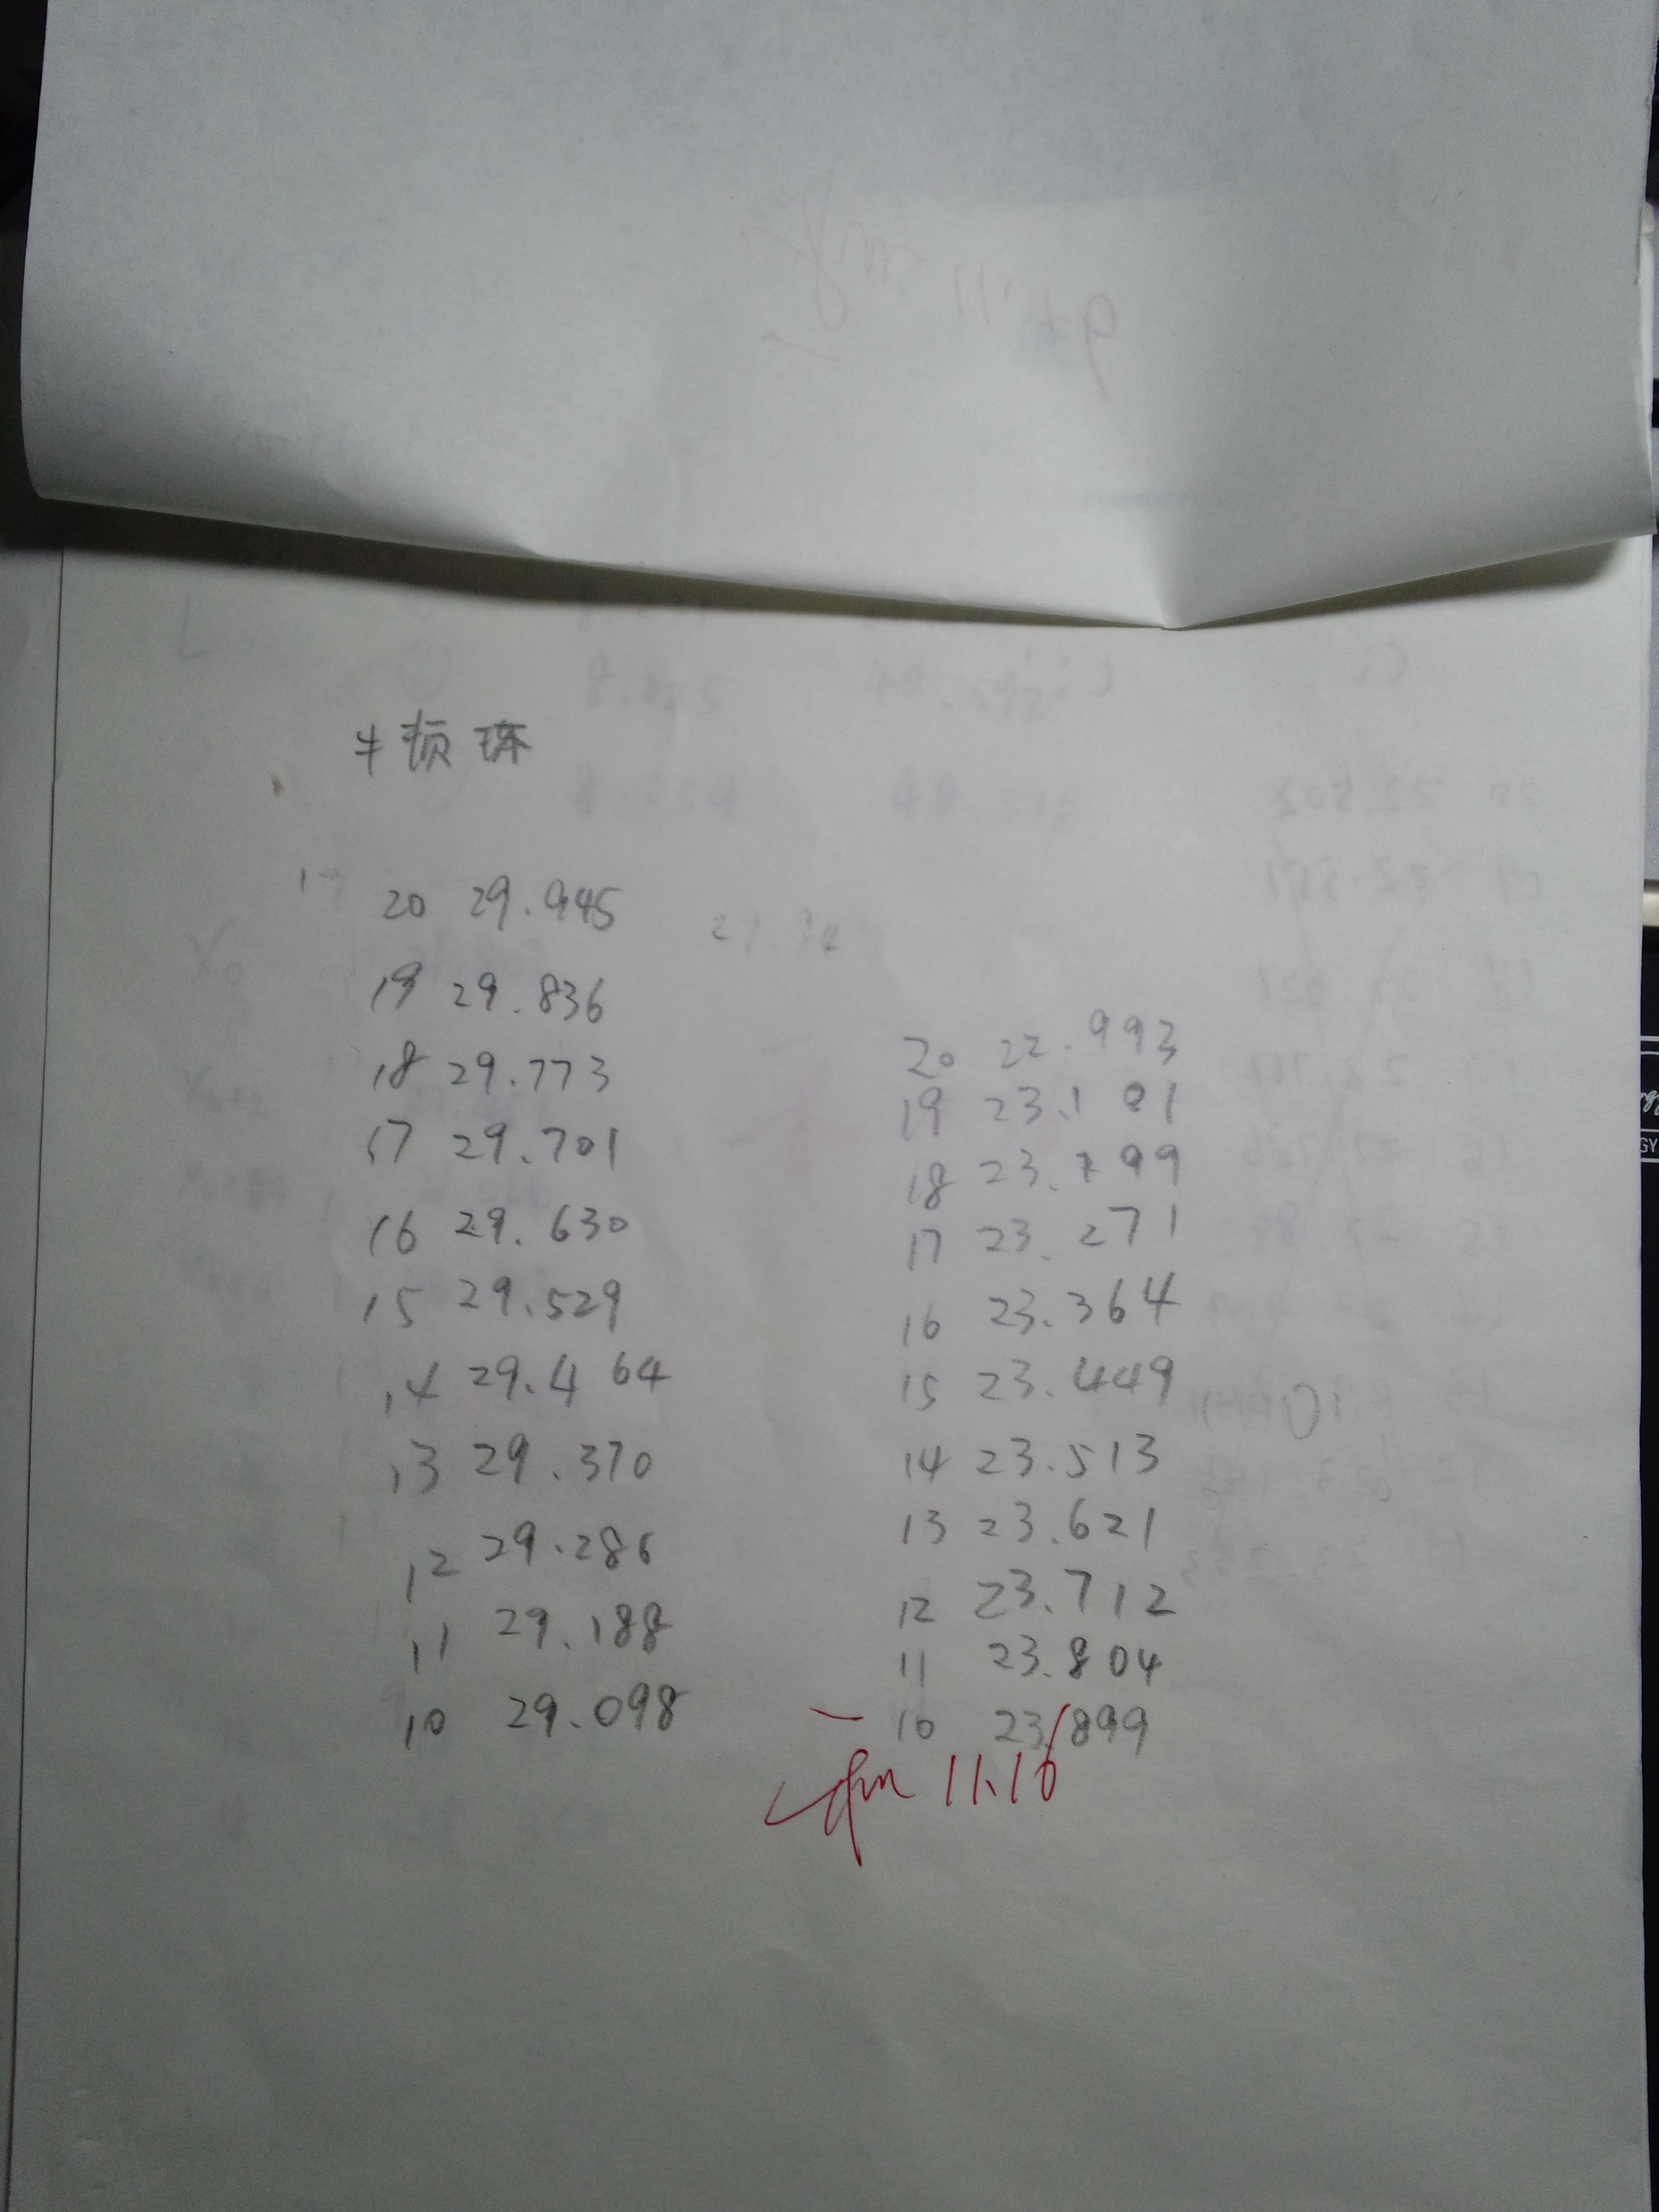 牛顿环
20 29.945
19 29.836
18 29.773
17 29.701
16 29.630
15 29.529
14 29.464
13 29.370
12 29.286
11 29.188
10 29.098
20 22.993
19 23.101
18 23.199
17 23.271
16 23.364
15 23.449
14 23.513
13 23.621
12 23.712
11 23.804
10 23.899
11.16